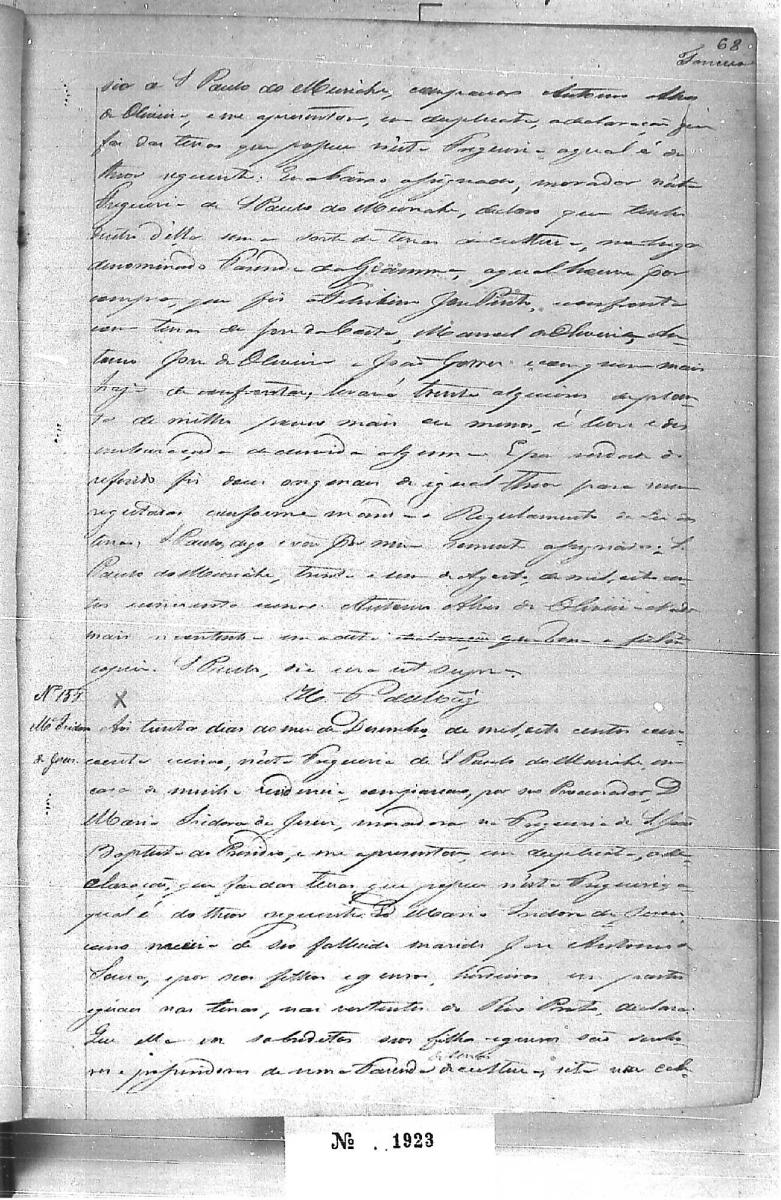 68
Fonseca
sia de S Paulo do Muriahe, compareceo Antonio Alves
de Oliveira, e me apresentou, em duplicata, a declaração que
faz das terras que possue n'esta Freguezia, a qual é do
theor seguinte: Eu abaixo assignado, morador n'esta
Freguesia de S Paulo do Muriahe, declaro que tenho
dentro d'ella uma sorte de terras de cultura, no lugar
denominado Fazenda da Gramma, a qual houve por
compra, que fiz a José Pinto, confronta
com terras de José da Costa, Manoel de Oliveira, An
tonio José de Oliveira e João Gomes e com quem mais
haja de confrontar, levará trinta alqueires de plan
ta de milho pouco mais ou menos, é livre e des
embaraçada de duvida alguma. E por verdade do
referido fiz dous originaes de igual theor para serem
registados conforme manda o Regulamento da Lei das
terras, S Paulo, digo e vão por mim somente assignados. S.
Paulo do Muriahe, trinta e um de Agosto de mil oito cen
tos cincoenta e cinco. Antonio Alves de Oliveira. Nada
mais continha em a dita declaração que bem e fielm
copiei. S Paulo, dia era ut supra.
Nº 155 X
Mª Isidora
de Jesus.
Aos trinta dias do mez de Desembro, de mil, oito centos cin-
coenta e cinco, n'esta Freguezia de S Paulo do Muriahe, em
casa de minha residencia, compareceo, por seo Procurador, D
Maria Isidora de Jesus, moradora na Freguezia de S João
Baptista do Presidio, e me apresentou, em duplicata, a de-
claração, que faz das terras, que possue n'esta Freguezia, a
qual é do theor seguinte: D Maria Isidora de Jesus
como meeira de seo fallecido marido José Antonio de
Sousa, e por seos filhos e genros, herdeiros em partes
iguaes nas terras, nas vertentes do Rio Preto, declara:
Que ella e os sobreditos seos filhos e genros são senho
res e possuidores de uma Fazenda de cultura, sita nas cab-
Nº 1923